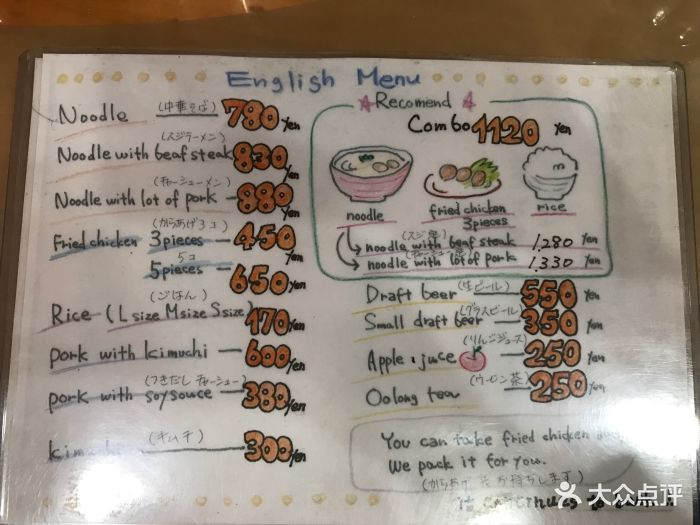 English Menu
Noodle (中華そば) 780 Yen
(スジラーメン)
Noodle with beaf steak 830 Yen
(チャーシューメン)
Noodle with lot of pork - 880 Yen
(からあげ3コ)
Fried chicken 3 pieces - 450 Yen
5コ
5 pieces - 650 Yen
(ごはん)
Rice - (L size M size S size) 170 Yen
pork with kimuchi - 600 Yen
(つきだし チャーシュー)
pork with soysouce - 380 Yen
(キムチ) 300 Yen
☆ Recomend ☆
Combo 1120 Yen
noodle
fried chicken
3 pieces
rice
noodle with beaf steak 1,280 Yen
noodle with lot of pork 1,330 Yen
Draft beer (生ビール) 550 Yen
(グラスビール)
Small draft beer - 350 Yen
(りんごジュース)
Apple juice 250 Yen
Oolong tea (ウーロン茶) 250 Yen
You can take fried chicken
We pack it for you.
大众点评